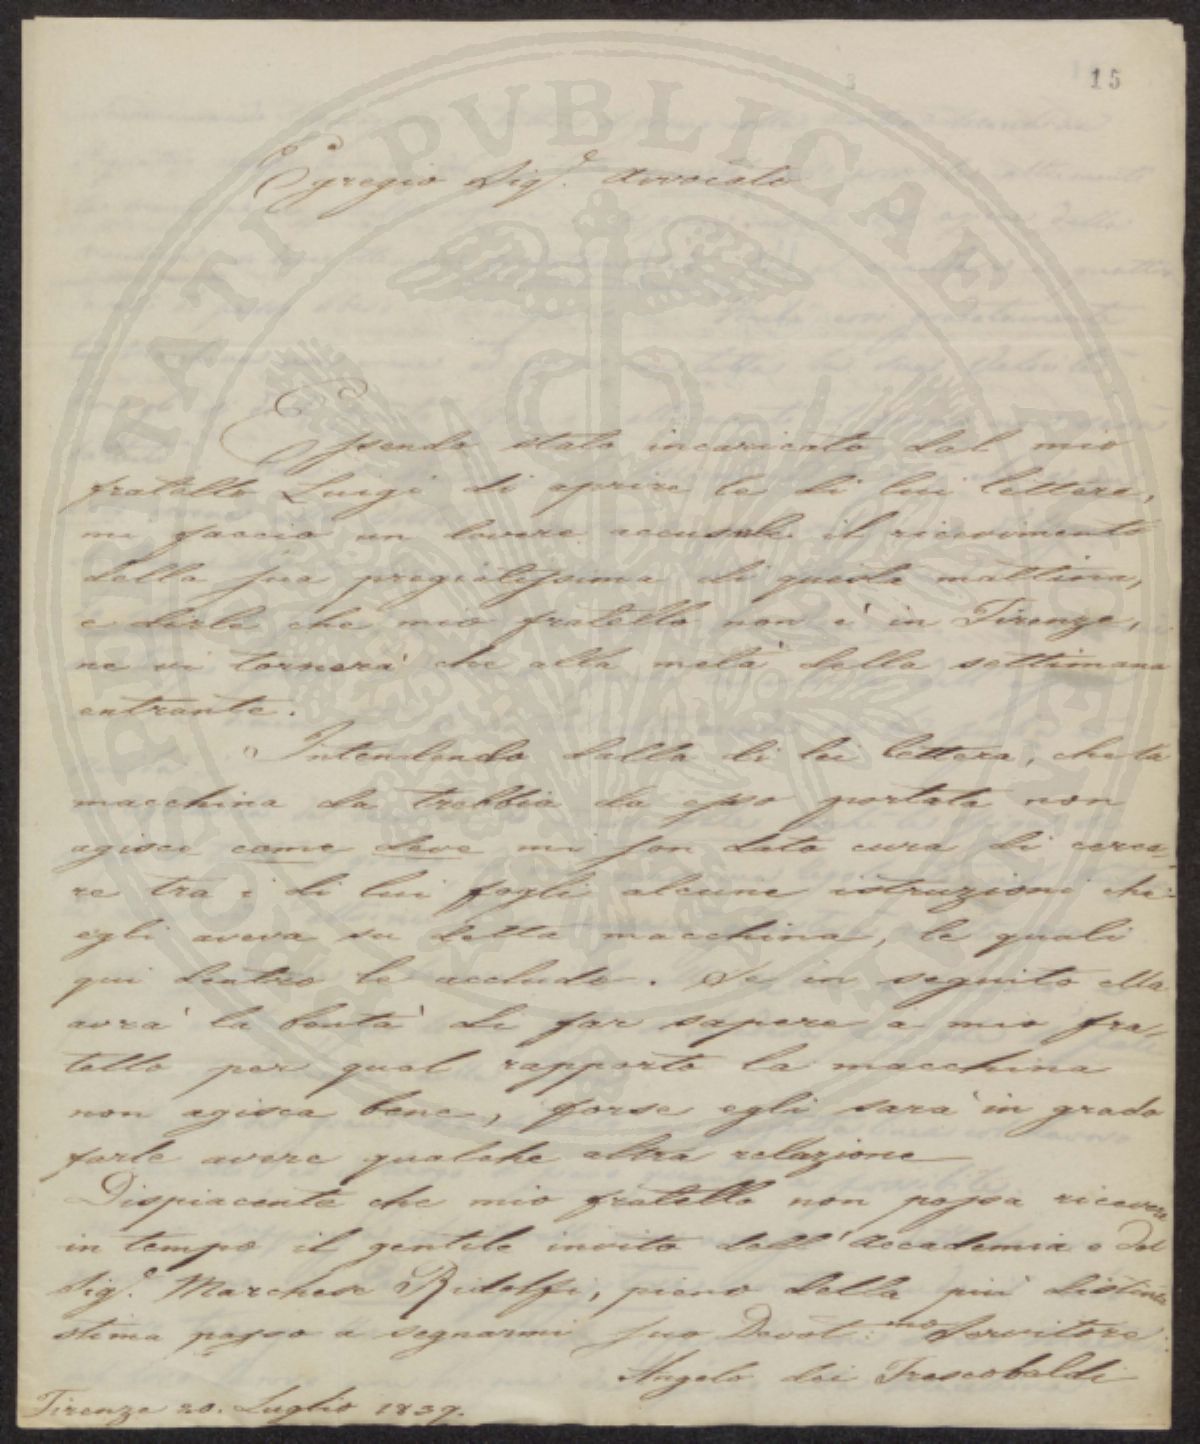 15
Egregio Sig.e Avvocato
Essendo stato incaricato dal mio
fratello Luigi di aprire le di lui lettere,
mi faccio un dovere accusarle il ricevimento
della sua pregiatissima di questa mattina,
e dirle che mio fratello non è in Firenze,
ne vi tornerà che alla metà della settimana
entrante.
Intendendo dalla di lei lettera, che la
macchina da trebbia da esso portata non
agisce come deve mi son dato cura di cerca-
re tra i di lui fogli alcune istruzioni che
egli aveva su detta macchina, le quali
qui dentro le accludo. Se in seguito ella
avrà la bontà di far sapere a mio fra-
tello per qual rapporto la macchina
non agisca bene, forse egli sarà in grado
farle avere qualche altra relazione
Dispiacente che mio fratello non possa ricevere
in tempo il gentile invito dell'Accademia e del
Sig.e Marchese Ridolfi, pieno della più distinta
stima passo a segnarmi suo Devot.mo Servitore
Angelo dei Frescobaldi
Firenze 20. Luglio 1839.
CIVITATI PVBLICAE